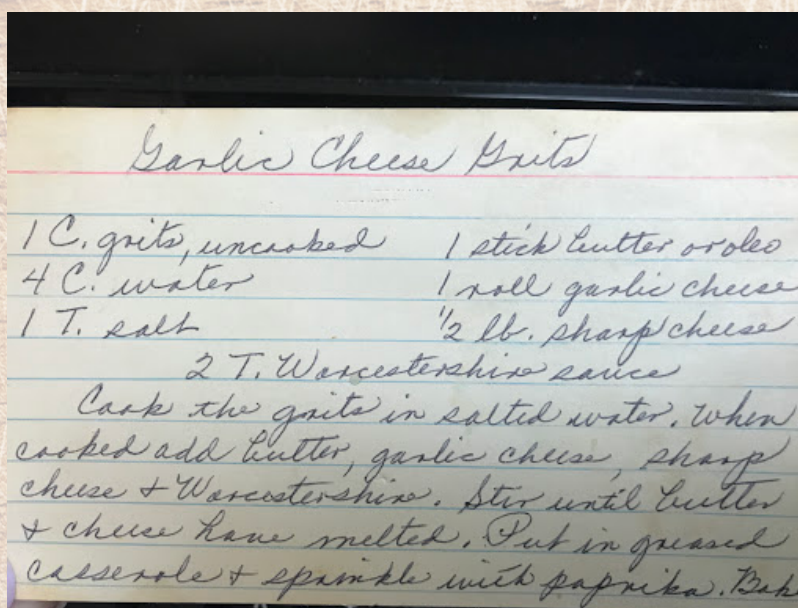 Garlic Cheese Grits
1 C. grits, uncooked 1 stick butter or oleo
4 C. water 1 roll garlic cheese
1 T. salt 1/2 lb. sharp cheese
2 T. Worcestershire sauce
Cook the grits in salted water. When
cooked add butter, garlic cheese, sharp
cheese & Worcestershire. Stir until butter
& cheese have melted. Put in greased
casserole & sprinkle with paprika. Bak